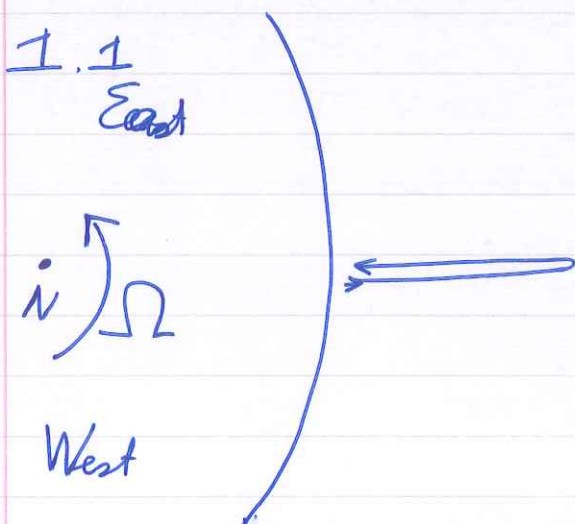 1.1
East
i Ω
West